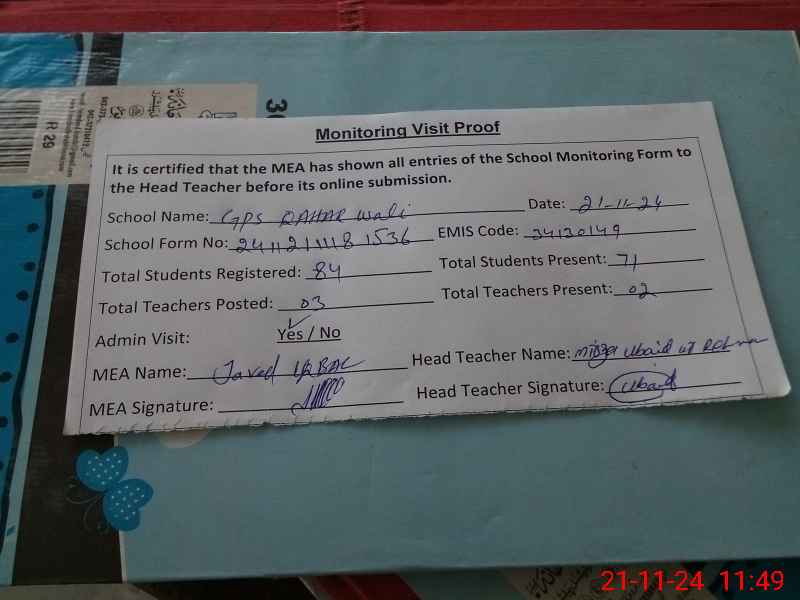 Monitoring Visit Proof
It is certified that the MEA has shown all entries of the School Monitoring Form to
the Head Teacher before its online submission.
School Name: GPS RAHAR Wali Date: 21-11-24
School Form No: 2411211118 1536 EMIS Code: 34130149
Total Students Registered: 84 Total Students Present: 71
Total Teachers Posted: 03 Total Teachers Present: 02
Admin Visit: Yes / No
MEA Name: Javed IQBAL Head Teacher Name: Ubaid ur
MEA Signature: Head Teacher Signature: Ubaid
R 29
21-11-24 11:49